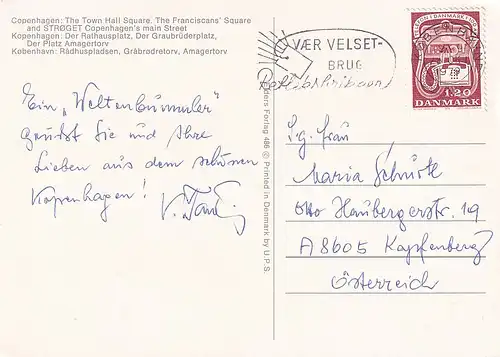 Copenhagen: The Town Hall Square. The Franciscans' Square
and STRØGET Copenhagen's main Street
Kopenhagen: Der Rathausplatz, Der Graubrüderplatz,
Der Platz Amagertorv
København: Rådhuspladsen, Gråbrødretorv, Amagertorv
Ein „Weltenbummler"
grüsst Sie und Ihre
Lieben aus dem schönen
Kopenhagen!
Forlag 486 © Printed in Denmark by U.P.S.
VÆR VELSET-
BRUG
refleksfribaand
DANMARK
1.20
S.g. Frau
Maria Schürk
Otto Haubergerstr. 19
A 8605 Kapfenberg
Österreich